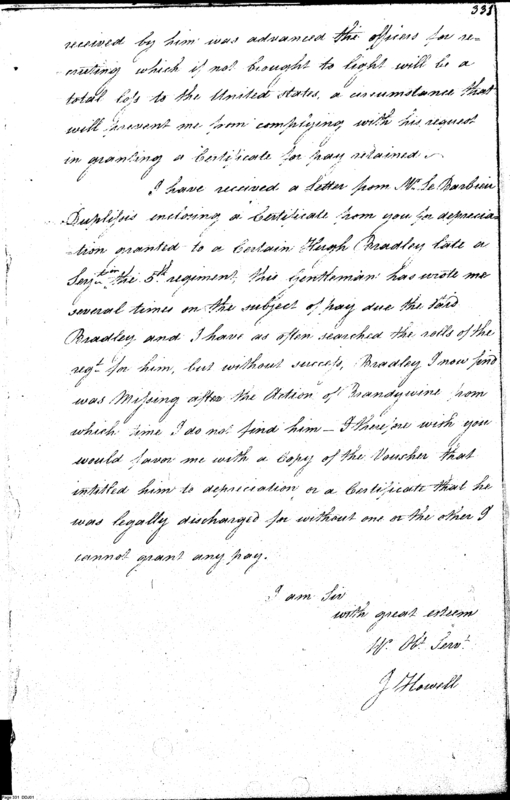 331
received by him was advanced the officers for re=
cruiting which if not brought to light will be a
total loss to the United States, a circumstance that
will prevent me from complying with his request
in granting a Certificate for pay retained.
I have received a Letter from Mr. Le Barbier
Duplissis inclosing a Certificate from you for deprecia=
=tion granted to a Certain Hugh Bradley late a
Serjt. in the 5th regiment, this Gentleman has wrote me
several times on the subject of pay due the said
Bradley and I have as often searched the rolls of the
regt. for him, but without success, Bradley I now find
was Missing after the Action of Brandywine from
which time I do not find him – I therefore wish you
would favor me with a Copy of the Voucher that
intitled him to depreciation or a Certificate that he
was legally discharged for without one or the other I
cannot grant any pay.
I am Sir
with great esteem
Yr. Obt. Servt.
J Howell
Page 331